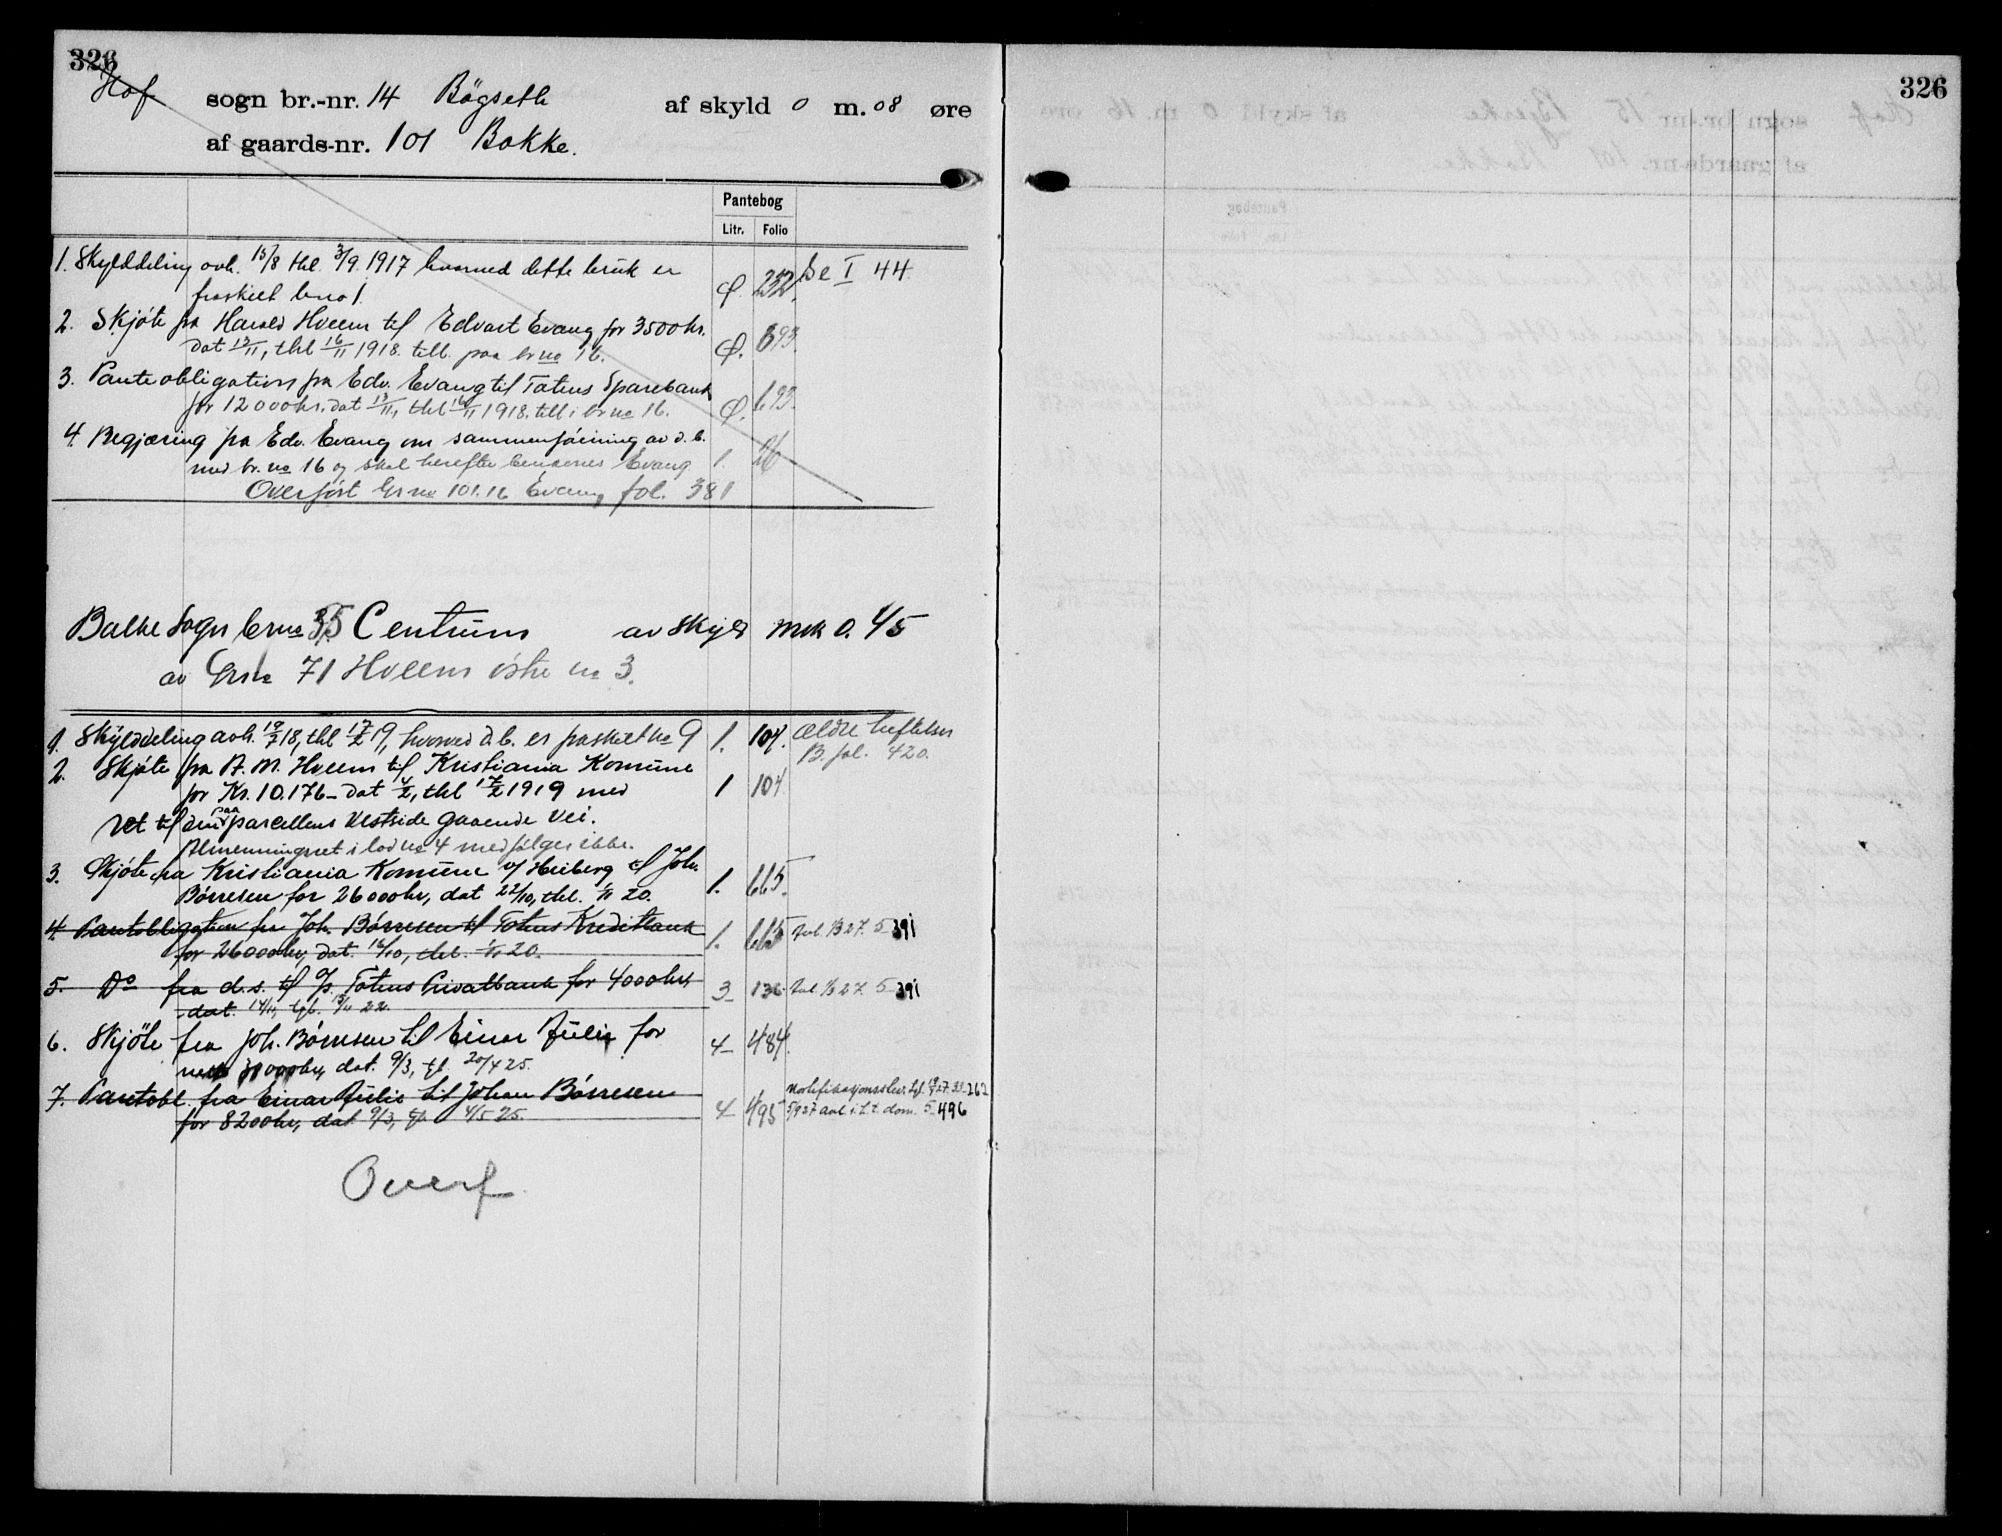 326
326
Hof sogn br.-nr. 14 Bøgseth af skyld 0 m. 08 øre
af gaards-nr. 101 Bakke.
Pantebog
Litr. Folio
1. Skylddeling avh. 15/8 thl. 3/9 1917 hvorved dette bruk er
fraskilt brno 1. φ. 232. Se I 44
2. Skjøte fra Harald Hveem til Edvart Evang for 3500 kr.
dat 13/11, thl 16/11 1918. till. paa brno 16. φ. 693.
3. Panteobligation fra Edv. Evang til Totens Sparebank
for 12000 kr. dat 13/11, thl 16/11 1918. till i brno 16. φ. 693.
4. Begjæring fra Edv. Evang om sammenføining av d. b.
med br. no 16 og skal herefter benævnes Evang 1. 26
Overført Grno 101.16 Evang fol. 381
Balke Sogn brno 35 Centrum av skyld mrk 0.45
av Grno 71 Hveem østre no 3.
1. Skylddeling avh. 19/7 18, thl 17/2 19, hvorved d. b. er fraskilt no 9 1. 104. Ældre heftelser
B. fol. 420.
2. Skjøte fra A. M. Hveem til Kristiania Komune
for Kr. 10.176 - dat 4/2, thl 17/2 1919 med 1 104
ret til den paa parcellens vestside gaaende vei.
Almenningsret i lod no 4 medfølger ikke.
3. Skjøte fra Kristiania Komune v/ Heiberg til Joh.
Børresen for 26000 kr, dat 22/10, thl. 1/11 20. 1. 665.
4. Pantobligation fra Joh. Børresen til Totens Kreditbank
for 26000 kr, dat. 16/10, thl. 1/11 20. 1. 665 Avl. 1/3 27. 5-391
5. Do fra d. s. til % Totens Privatbank for 4000 kr,
dat. 14/11, tgl. 15/11 22. 3- 136 Avl. 1/3 27. 5-391
6. Skjöte fra Joh. Børresen til Einar Julin for
dat. 9/3, tgl. 20/4 25. 4- 484.
7. Pantobl. fra Einar Julin til Johan Børresen
for 8200 kr, dat 9/3, tgl 4/5 25. 4- 495 5-496
Overf.